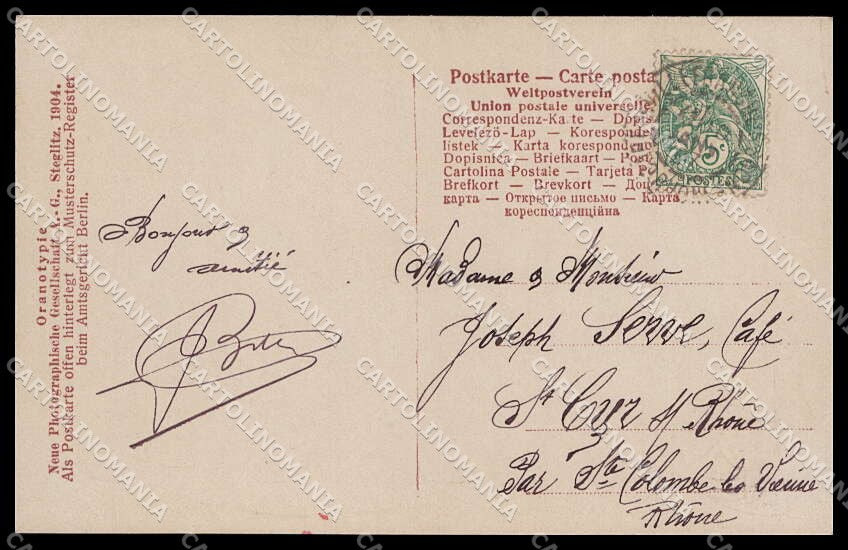 Oranotypie
Neue Photographische Gesellschaft A.-G., Steglitz. 1904.
Als Postkarte offen hinterlegt zum Musterschutz-Register
beim Amtsgericht Berlin.
Postkarte — Carte posta
Weltpostverein
Union postale universelle
Correspondenz-Karte — Dopis
Levelező-Lap — Koresponden
listek — Karta koresponden
Dopisnica — Briefkaart — Post
Cartolina Postale — Tarjeta P
Brefkort — Brevkort — Доп
карта — Открытое письмо — Карта
кореспонденційна
5c
POSTES
Bonjour &
amitié
Madame & Monsieur
Joseph Serve, Café
St Cyr s/ Rhône
Par Ste Colombe les Vienne
Rhône
CARTOLINOMANIA